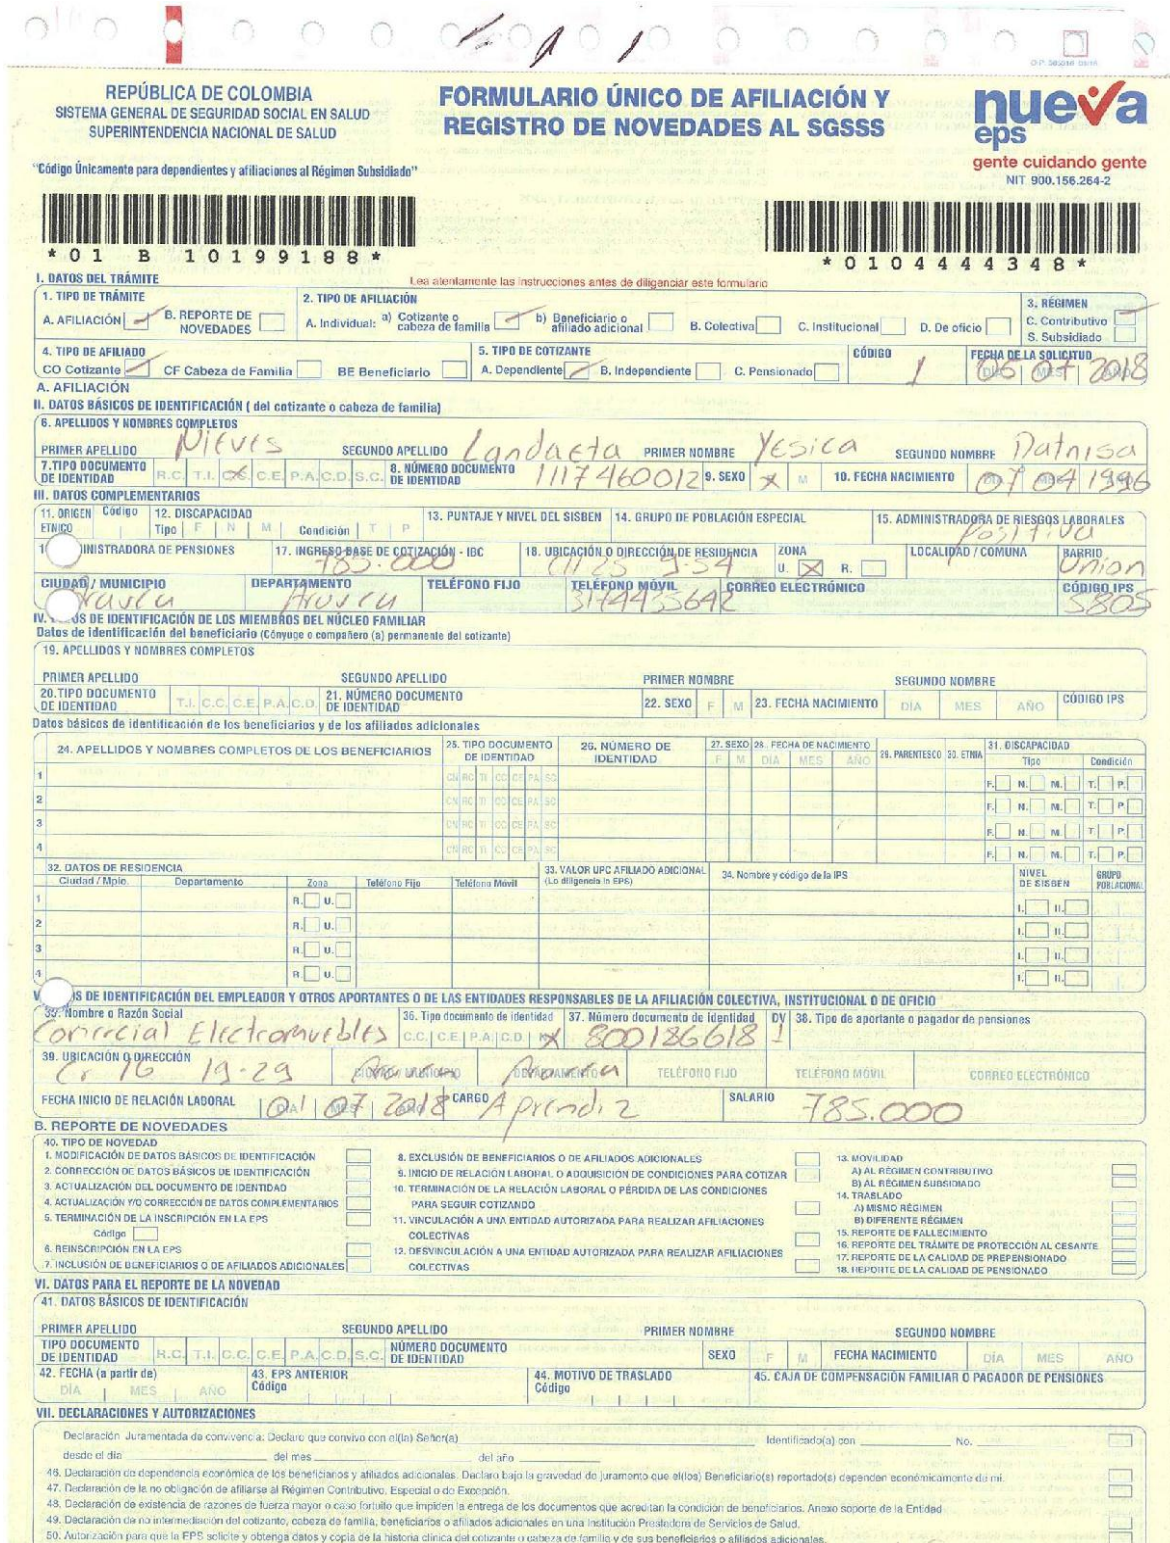 O.P. 585818 08/16
REPÚBLICA DE COLOMBIA
SISTEMA GENERAL DE SEGURIDAD SOCIAL EN SALUD
SUPERINTENDENCIA NACIONAL DE SALUD
FORMULARIO ÚNICO DE AFILIACIÓN Y
REGISTRO DE NOVEDADES AL SGSSS
nueva
eps
gente cuidando gente
NIT 900.156.264-2
"Código Únicamente para dependientes y afiliaciones al Régimen Subsidiado"
*01 B 10199188*
*0104444348*
I. DATOS DEL TRÁMITE Lea atentamente las instrucciones antes de diligenciar este formulario
1. TIPO DE TRÁMITE 2. TIPO DE AFILIACIÓN 3. RÉGIMEN
A. AFILIACIÓN B. REPORTE DE NOVEDADES A. Individual: a) Cotizante o cabeza de familia b) Beneficiario o afiliado adicional B. Colectiva C. Institucional D. De oficio C. Contributivo
S. Subsidiado
4. TIPO DE AFILIADO 5. TIPO DE COTIZANTE CÓDIGO FECHA DE LA SOLICITUD
CO Cotizante CF Cabeza de Familia BE Beneficiario A. Dependiente B. Independiente C. Pensionado 1 06 07 2018
A. AFILIACIÓN
II. DATOS BÁSICOS DE IDENTIFICACIÓN ( del cotizante o cabeza de familia)
6. APELLIDOS Y NOMBRES COMPLETOS
PRIMER APELLIDO Nieves SEGUNDO APELLIDO Landaeta PRIMER NOMBRE Yesica SEGUNDO NOMBRE Datnisa
7.TIPO DOCUMENTO DE IDENTIDAD R.C. T.I. C.C. C.E. P.A. C.D. S.C. 8. NÚMERO DOCUMENTO DE IDENTIDAD 1117460012 9. SEXO x M 10. FECHA NACIMIENTO 07 04 1996
III. DATOS COMPLEMENTARIOS
11. ORIGEN ETNICO Código 12. DISCAPACIDAD Tipo F N M Condición T P 13. PUNTAJE Y NIVEL DEL SISBEN 14. GRUPO DE POBLACIÓN ESPECIAL 15. ADMINISTRADORA DE RIESGOS LABORALES
Positiva
INISTRADORA DE PENSIONES 17. INGRESO BASE DE COTIZACIÓN - IBC 18. UBICACIÓN O DIRECCIÓN DE RESIDENCIA ZONA LOCALIDAD / COMUNA BARRIO
785.000 Cll 25 9-54 U. X R. Union
CIUDAD / MUNICIPIO DEPARTAMENTO TELÉFONO FIJO TELÉFONO MÓVIL CORREO ELECTRÓNICO CÓDIGO IPS
Arauca Arauca 3174455642 5805
IV. DATOS DE IDENTIFICACIÓN DE LOS MIEMBROS DEL NÚCLEO FAMILIAR
Datos de identificación del beneficiario (Cónyuge o compañero (a) permanente del cotizante)
19. APELLIDOS Y NOMBRES COMPLETOS
PRIMER APELLIDO SEGUNDO APELLIDO PRIMER NOMBRE SEGUNDO NOMBRE
20.TIPO DOCUMENTO DE IDENTIDAD T.I. C.C. C.E. P.A. C.D. 21. NÚMERO DOCUMENTO DE IDENTIDAD 22. SEXO F M 23. FECHA NACIMIENTO DÍA MES AÑO CÓDIGO IPS
Datos básicos de identificación de los beneficiarios y de los afiliados adicionales
24. APELLIDOS Y NOMBRES COMPLETOS DE LOS BENEFICIARIOS 25. TIPO DOCUMENTO DE IDENTIDAD 26. NÚMERO DE IDENTIDAD 27. SEXO F M 28. FECHA DE NACIMIENTO DIA MES AÑO 29. PARENTESCO 30. ETNIA 31. DISCAPACIDAD Tipo Condición
1 CN RC TI CC CE PA SC F. N. M. T. P.
2 CN RC TI CC CE PA SC F. N. M. T. P.
3 CN RC TI CC CE PA SC F. N. M. T P.
4 CN RC TI CC CE PA SC F. N. M. T. P.
32. DATOS DE RESIDENCIA 33. VALOR UPC AFILIADO ADICIONAL (Lo diligencia la EPS) 34. Nombre y código de la IPS NIVEL DE SISBEN GRUPO POBLACIONAL
Ciudad / Mpio. Departamento Zona Teléfono Fijo Teléfono Móvil
1 R. U. I. II.
2 R. U. I. II.
3 R. U. I. II.
4 R. U. I. II.
V. OS DE IDENTIFICACIÓN DEL EMPLEADOR Y OTROS APORTANTES O DE LAS ENTIDADES RESPONSABLES DE LA AFILIACIÓN COLECTIVA, INSTITUCIONAL O DE OFICIO
35. Nombre o Razón Social 36. Tipo documento de identidad 37. Número documento de identidad DV 38. Tipo de aportante o pagador de pensiones
Comercial Electromuebles C.C. C.E. P.A. C.D. X 800186618 1
39. UBICACIÓN O DIRECCIÓN
Cr 16 19-29 CIUDAD / MUNICIPIO Arauca DEPARTAMENTO Arauca TELÉFONO FIJO TELÉFONO MÓVIL CORREO ELECTRÓNICO
FECHA INICIO DE RELACIÓN LABORAL 01 07 2018 CARGO Aprendiz SALARIO 785.000
B. REPORTE DE NOVEDADES
40. TIPO DE NOVEDAD
1. MODIFICACIÓN DE DATOS BÁSICOS DE IDENTIFICACIÓN
2. CORRECCIÓN DE DATOS BÁSICOS DE IDENTIFICACIÓN
3. ACTUALIZACIÓN DEL DOCUMENTO DE IDENTIDAD
4. ACTUALIZACIÓN Y/O CORRECCIÓN DE DATOS COMPLEMENTARIOS
5. TERMINACIÓN DE LA INSCRIPCIÓN EN LA EPS
Código
6. REINSCRIPCIÓN EN LA EPS
7. INCLUSIÓN DE BENEFICIARIOS O DE AFILIADOS ADICIONALES
8. EXCLUSIÓN DE BENEFICIARIOS O DE AFILIADOS ADICIONALES
9. INICIO DE RELACIÓN LABORAL O ADQUISICIÓN DE CONDICIONES PARA COTIZAR
10. TERMINACIÓN DE LA RELACIÓN LABORAL O PÉRDIDA DE LAS CONDICIONES
PARA SEGUIR COTIZANDO
11. VINCULACIÓN A UNA ENTIDAD AUTORIZADA PARA REALIZAR AFILIACIONES
COLECTIVAS
12. DESVINCULACIÓN A UNA ENTIDAD AUTORIZADA PARA REALIZAR AFILIACIONES
COLECTIVAS
13. MOVILIDAD
A) AL RÉGIMEN CONTRIBUTIVO
B) AL RÉGIMEN SUBSIDIADO
14. TRASLADO
A) MISMO RÉGIMEN
B) DIFERENTE RÉGIMEN
15. REPORTE DE FALLECIMIENTO
16. REPORTE DEL TRÁMITE DE PROTECCIÓN AL CESANTE
17. REPORTE DE LA CALIDAD DE PREPENSIONADO
18. REPORTE DE LA CALIDAD DE PENSIONADO
VI. DATOS PARA EL REPORTE DE LA NOVEDAD
41. DATOS BÁSICOS DE IDENTIFICACIÓN
PRIMER APELLIDO SEGUNDO APELLIDO PRIMER NOMBRE SEGUNDO NOMBRE
TIPO DOCUMENTO DE IDENTIDAD R.C. T.I. C.C. C.E. P.A. C.D. S.C. NÚMERO DOCUMENTO DE IDENTIDAD SEXO F M FECHA NACIMIENTO DÍA MES AÑO
42. FECHA (a partir de) DÍA MES AÑO 43. EPS ANTERIOR Código 44. MOTIVO DE TRASLADO Código 45. CAJA DE COMPENSACIÓN FAMILIAR O PAGADOR DE PENSIONES
VII. DECLARACIONES Y AUTORIZACIONES
Declaración Juramentada de convivencia: Declaro que convivo con el(la) Señor(a) Identificado(a) con No.
desde el día del mes del año
46. Declaración de dependencia económica de los beneficiarios y afiliados adicionales. Declaro bajo la gravedad de juramento que el(los) Beneficiario(s) reportado(s) dependen económicamente de mi.
47. Declaración de la no obligación de afiliarse al Régimen Contributivo, Especial o de Excepción.
48. Declaración de existencia de razones de fuerza mayor o caso fortuito que impiden la entrega de los documentos que acreditan la condición de beneficiarios. Anexo soporte de la Entidad
49. Declaración de no intermediación del cotizante, cabeza de familia, beneficiarios o afiliados adicionales en una Institución Prestadora de Servicios de Salud.
50. Autorización para que la EPS solicite y obtenga datos y copia de la historia clínica del cotizante o cabeza de familia y de sus beneficiarios o afiliados adicionales.